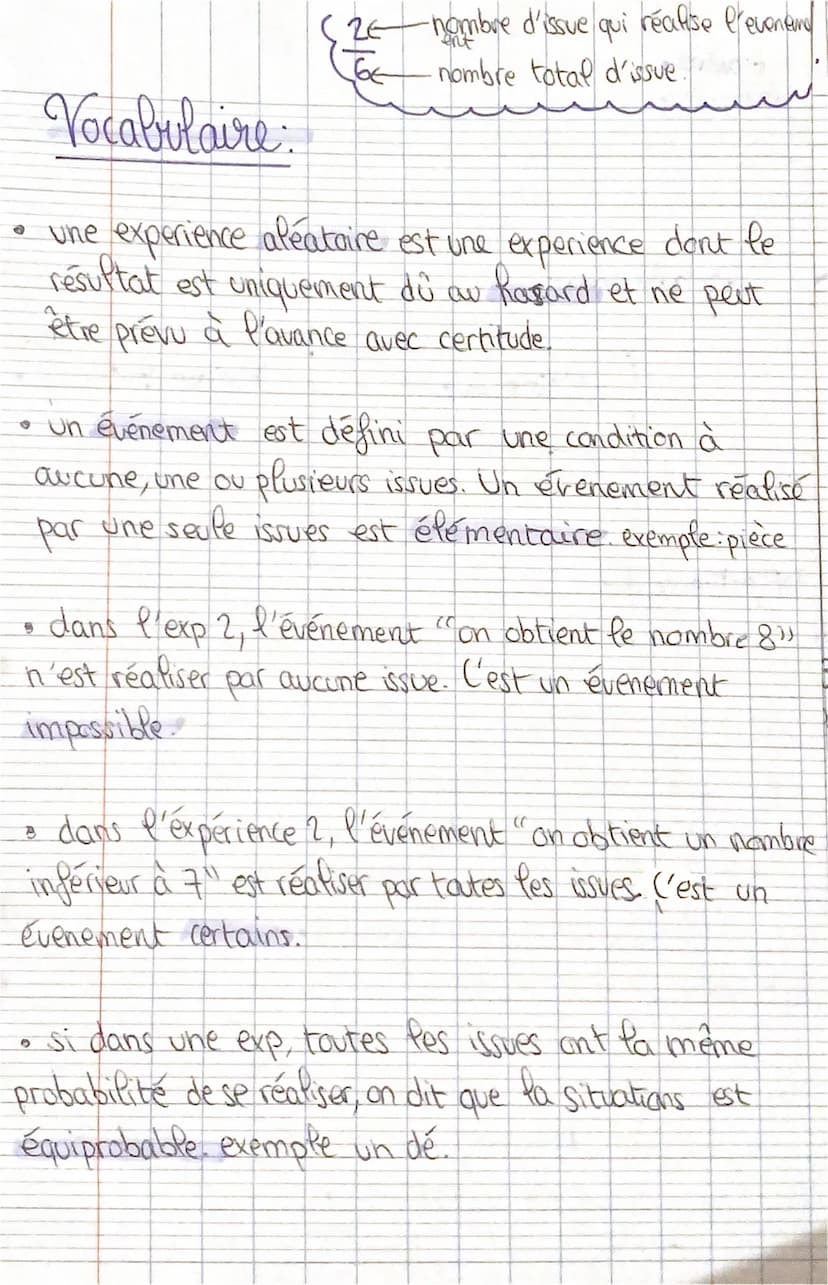 2 ← nombre d'issue qui réalise l'evenem
ent
6 ← nombre total d'issue.
Vocabulaire:
• une experience aléatoire est une experience dont le
résultat est uniquement dû au hasard et ne peut
être prévu à l'avance avec certitude.
• un événement est défini par une condition à
aucune, une ou plusieurs issues. Un évenement réalisé
par une seule issues est élémentaire. exemple: pièce
• dans l'exp 2, l'événement "on obtient le nombre 8"
n'est réaliser par aucune issue. C'est un évenement
impossible.
• dans l'éxpérience 2, l'événement "on obtient un nombre
inférieur à 7" est réaliser par toutes les issues. C'est un
évenement certains.
• si dans une exp, toutes les issues ont la même
probabilité de se réaliser, on dit que la situations est
équiprobable. exemple un dé.